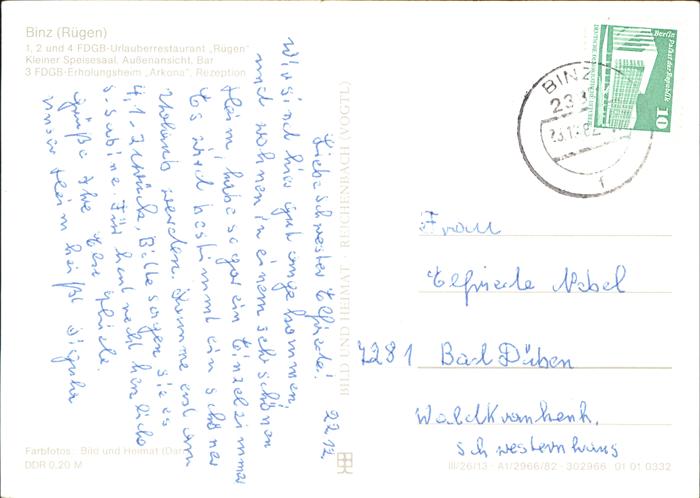 Binz (Rügen)
1, 2 und 4 FDGB-Urlauberrestaurant „Rügen"
Kleiner Speisesaal, Außenansicht, Bar
3 FDGB-Erholungsheim „Arkona", Rezeption
22 12
Liebe Schwester Elfriede!
Wir sind hier gut angekommen
und wohnen in einem sehr schönen
Heim, habe sogar ein Einzelzimmer
Es wird bestimmt ein schöner
Urlaub werden. Komme erst am
4.1. zurück, Bitte sagen sie es
s. Sabine. Für heut recht herzliche
Grüße Ihre
unser Heim heißt
Farbfotos: Bild und Heimat
DDR 0,20 M
BILD UND HEIMAT · REICHENBACH (VOGTL)
Berlin Palast der Republik
10
BINZ
23
Frau
Elfriede Nebel
7281 Bad Düben
Waldkrankenh.
Schwesternhaus
III/26/13 · A1/2966/82 · 302966 01 01 0332